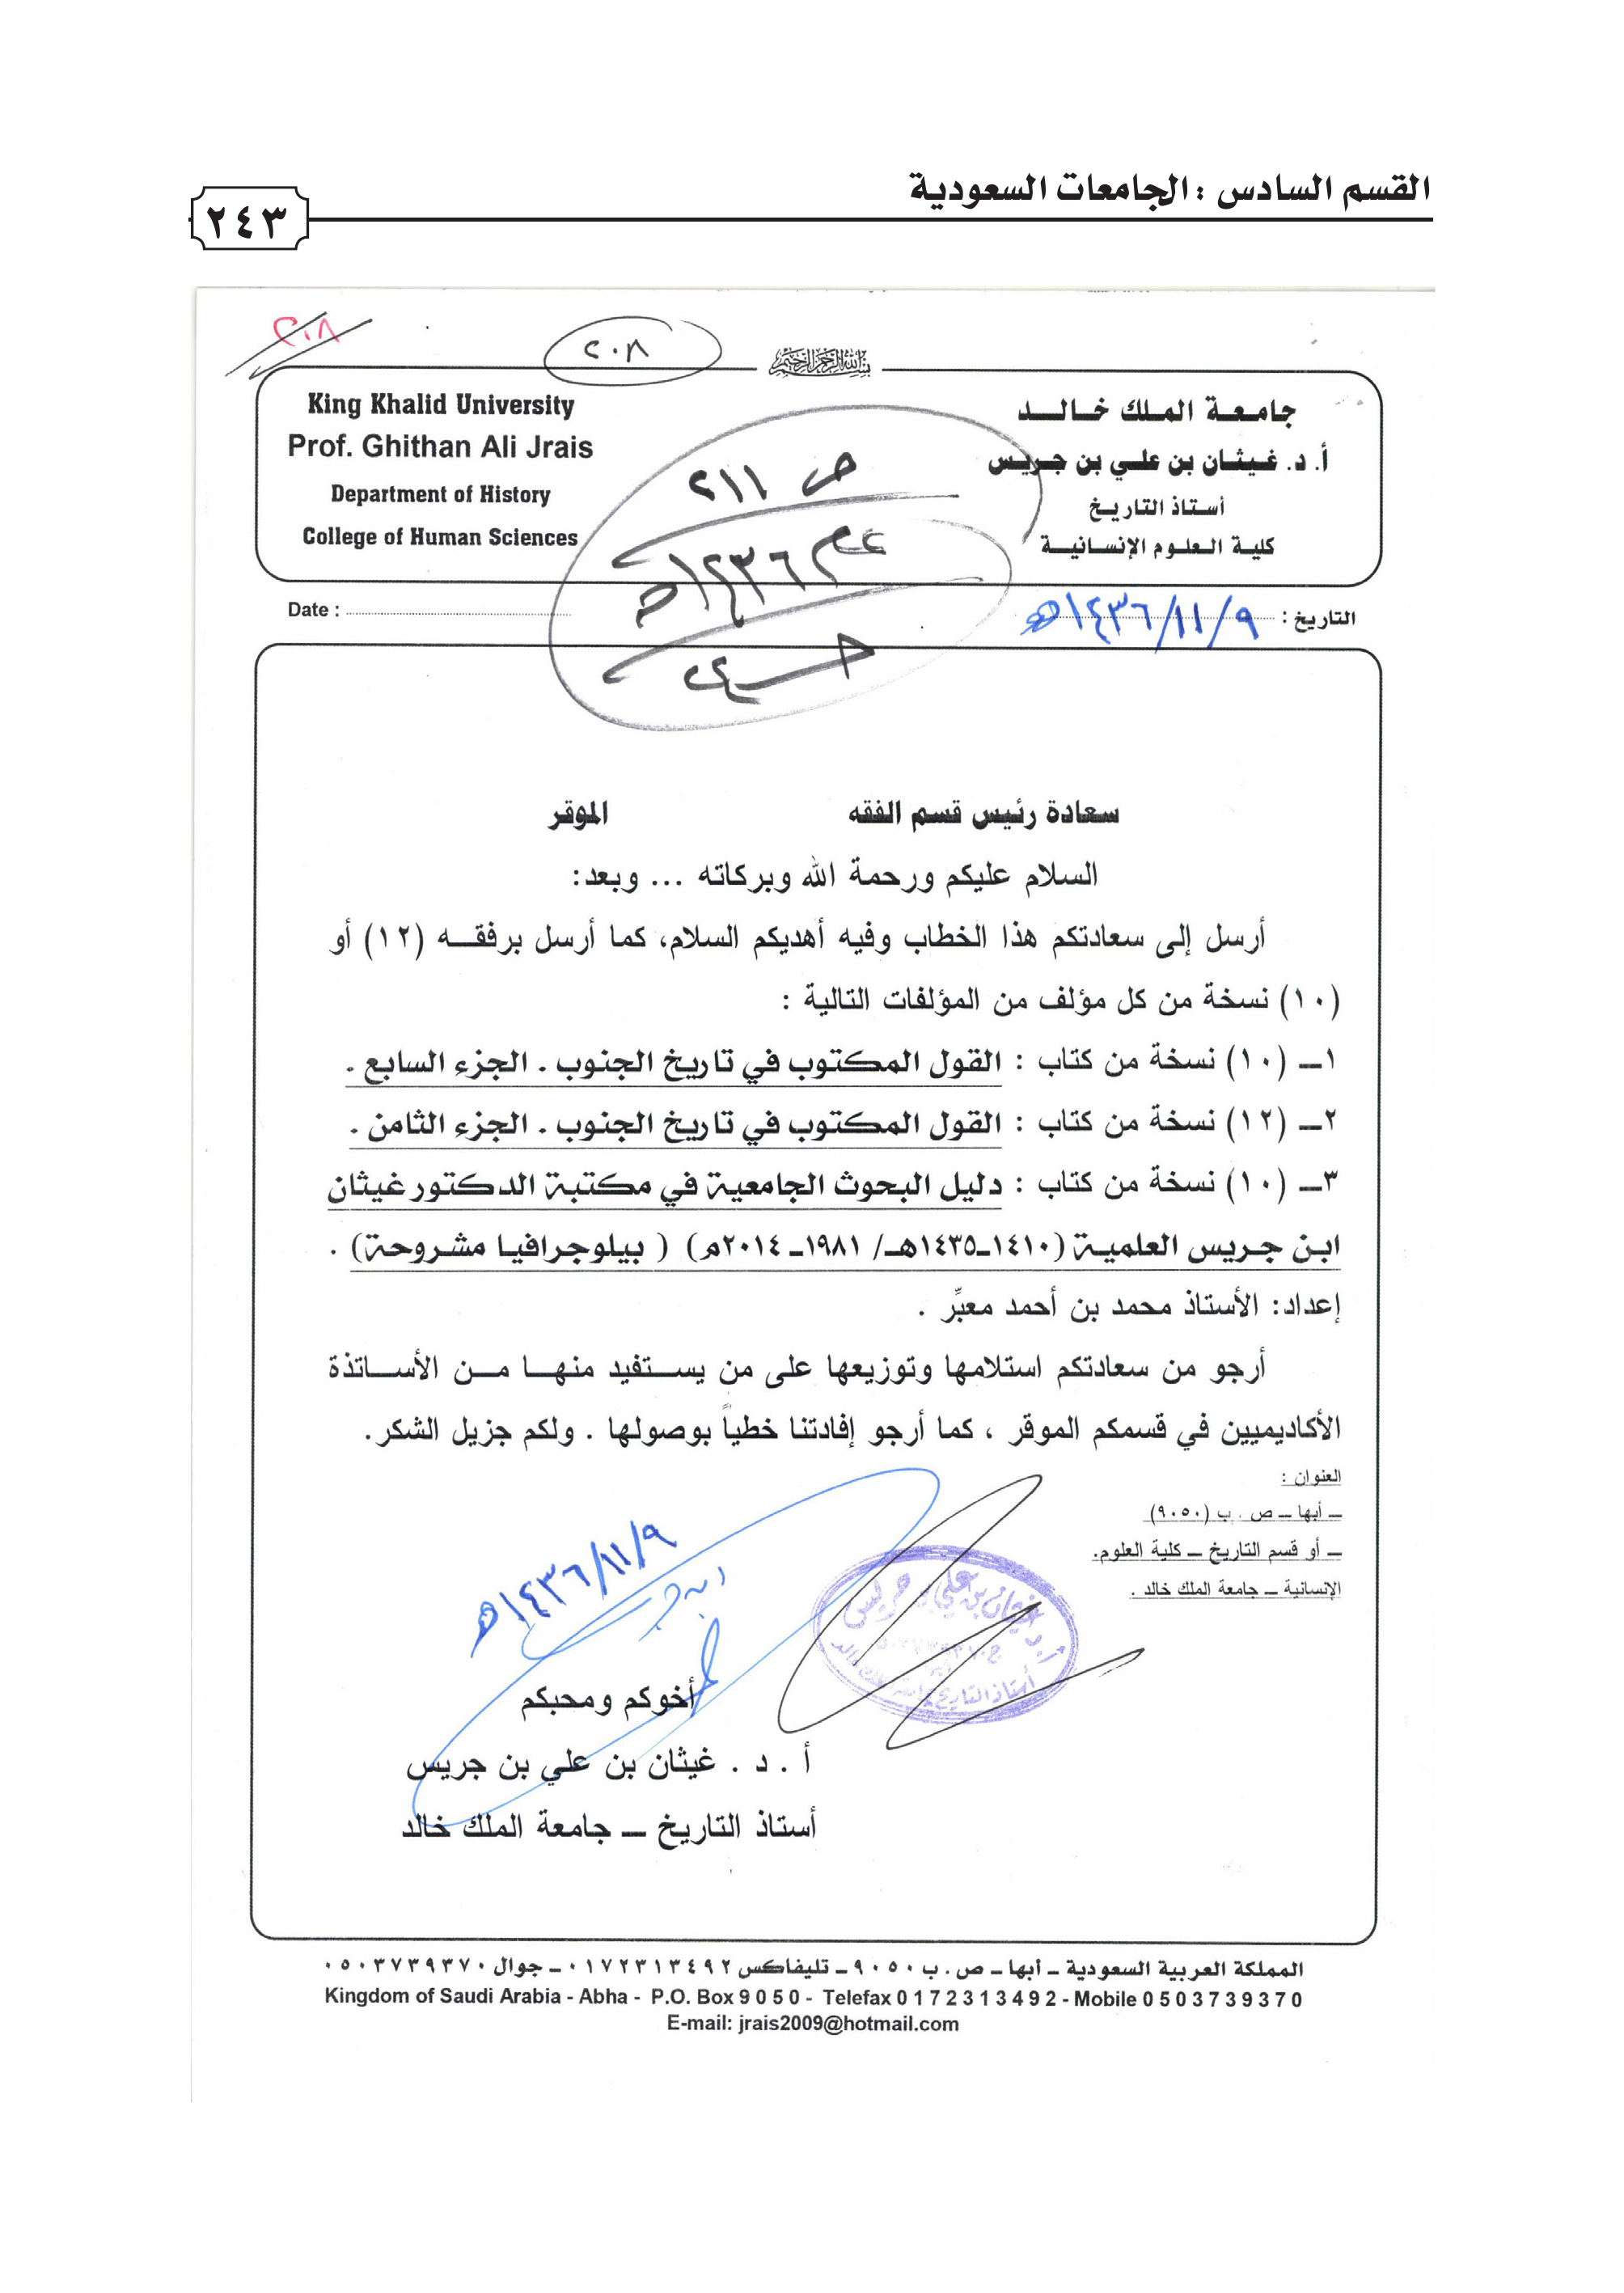 القسم السادس : الجامعات السعودية
٢٤٣
٢٠٨
٢٠٨
بسم الله الرحمن الرحيم
جامعة الملك خالد
أ. د. غيثان بن علي بن جريس
أستاذ التاريخ
كلية العلوم الإنسانية
King Khalid University
Prof. Ghithan Ali Jrais
Department of History
College of Human Sciences
ص ٢١١
١٤٣٦هـ
التاريخ : ١٤٣٦/١١/٩هـ
Date :
سعادة رئيس قسم الفقه الموقر
السلام عليكم ورحمة الله وبركاته ... وبعد:
أرسل إلى سعادتكم هذا الخطاب وفيه أهديكم السلام، كما أرسل برفقه (١٢) أو
(١٠) نسخة من كل مؤلف من المؤلفات التالية :
١ــ (١٠) نسخة من كتاب : القول المكتوب في تاريخ الجنوب . الجزء السابع .
٢ــ (١٢) نسخة من كتاب : القول المكتوب في تاريخ الجنوب . الجزء الثامن .
٣ــ (١٠) نسخة من كتاب : دليل البحوث الجامعية في مكتبة الدكتور غيثان
ابن جريس العلمية (١٤١٠ــ١٤٣٥هـ/ ١٩٨١ــ٢٠١٤م) ( بيلوجرافيا مشروحة) .
إعداد: الأستاذ محمد بن أحمد معبِّر .
أرجو من سعادتكم استلامها وتوزيعها على من يستفيد منها من الأساتذة
الأكاديميين في قسمكم الموقر ، كما أرجو إفادتنا خطياً بوصولها . ولكم جزيل الشكر.
العنوان :
ــ أبها ــ ص . ب (٩٠٥٠)
ــ أو قسم التاريخ ــ كلية العلوم.
الإنسانية ــ جامعة الملك خالد .
١٤٣٦/١١/٩هـ
أ.د غيثان بن علي بن جريس
أستاذ التاريخ
أخوكم ومحبكم
أ . د . غيثان بن علي بن جريس
أستاذ التاريخ ــ جامعة الملك خالد
المملكة العربية السعودية ــ أبها ــ ص . ب ٩٠٥٠ ــ تليفاكس ٠١٧٢٣١٣٤٩٢ ــ جوال ٠٥٠٣٧٣٩٣٧٠
Kingdom of Saudi Arabia - Abha - P.O. Box 9 0 5 0 - Telefax 0 1 7 2 3 1 3 4 9 2 - Mobile 0 5 0 3 7 3 9 3 7 0
E-mail: jrais2009@hotmail.com